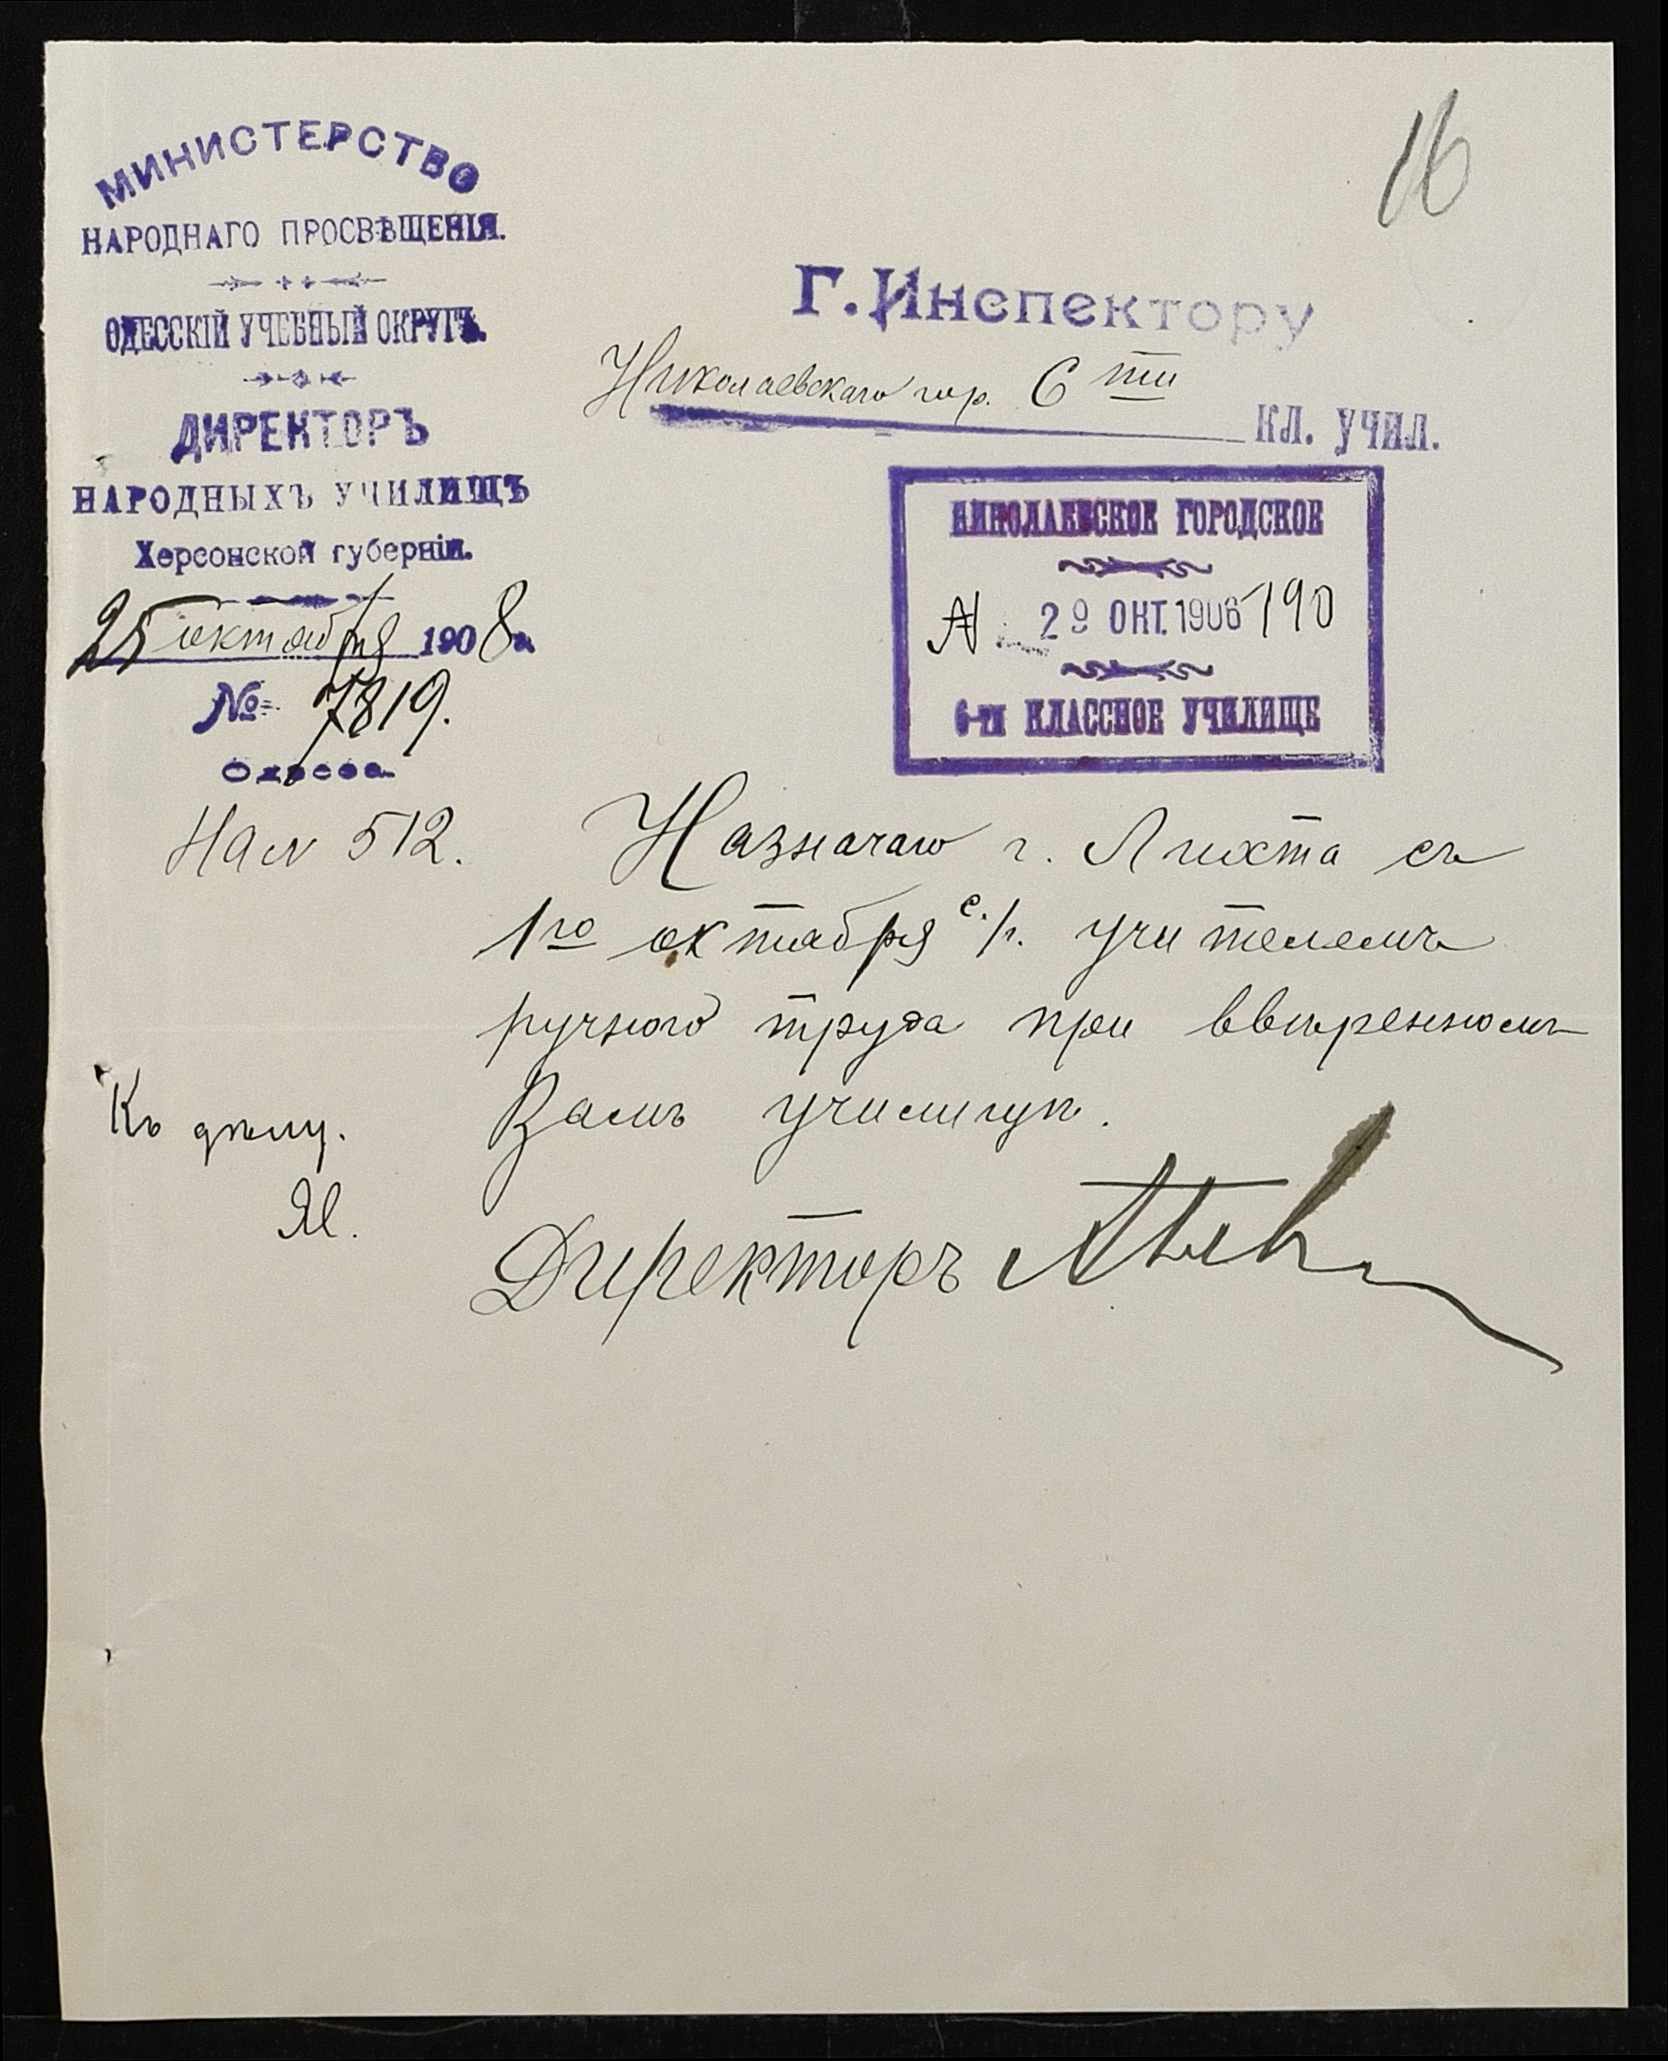 16
МИНИСТЕРСТВО
НАРОДНАГО ПРОСВѢЩЕНІЯ.
ОДЕССКІЙ УЧЕБНЫЙ ОКРУГЪ.
ДИРЕКТОРЪ
НАРОДНЫХЪ УЧИЛИЩЪ
Херсонской губерніи.
25 октября 1908 г.
№ 7819.
Одесса
На № 512.
Г. Инспектору
Николаевскаго гор. 6 ти
кл. учил.
НИКОЛАЕВСКОЕ ГОРОДСКОЕ
№ 29 ОКТ. 1906 190
6-ТИ КЛАССНОЕ УЧИЛИЩЕ
Назначаю г. Лихта съ
1го октября с./г. учителемъ
ручного труда при ввѣренномъ
Вамъ училищѣ.
Къ дѣлу.
Директоръ